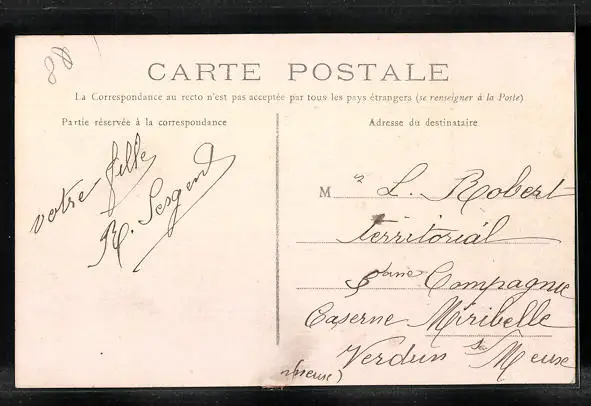 88
CARTE POSTALE
La Correspondance au recto n'est pas acceptée par tous les pays étrangers (se renseigner à la Poste)
Partie réservée à la correspondance
votre fille
R. Sergent
Adresse du destinataire
M r L. Robert
territorial
Compagnie
Caserne Miribelle
Verdun s/ Meuse
(Meuse)